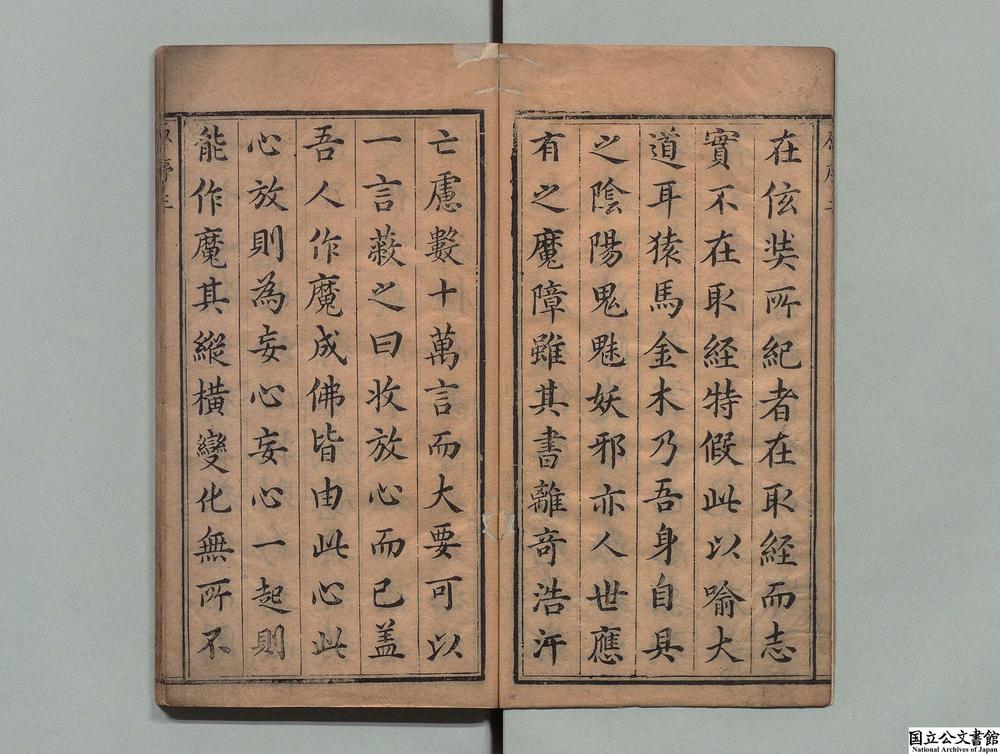 在佉奘所紀者在取經而志
實不在取經特假此以喻大
道耳猿馬金木乃吾身自具
之陰陽鬼魅妖邪亦人世應
有之魔障雖其書離奇浩汗
亡慮數十萬言而大要可以
一言蔽之曰收放心而已蓋
吾人作魔成佛皆由此心此
心放則為妄心妄心一起則
能作魔其縱橫變化無所不
国立公文書館
National Archives of Japan